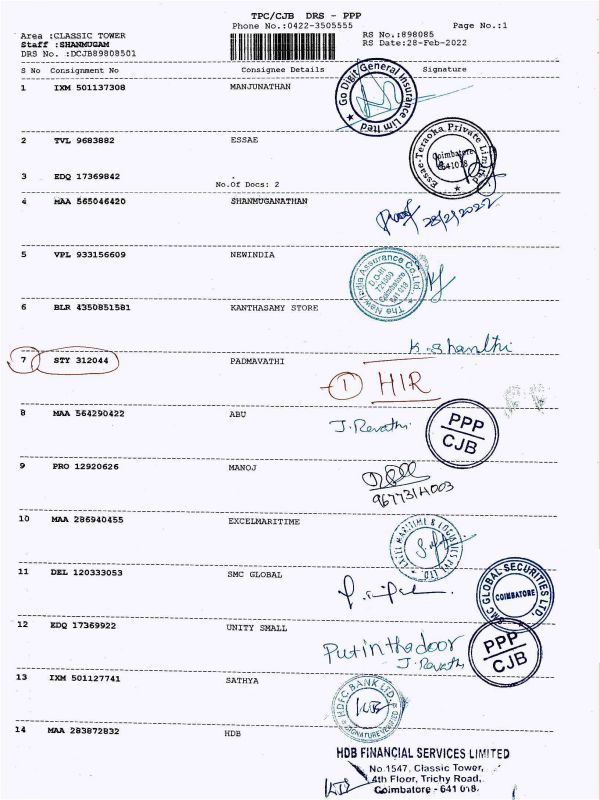 TPC/CJB DRS - PPP
Phone No.:0422-3505555 Page No.:1
Area :CLASSIC TOWER RS No.:898085
Staff :SHANMUGAM RS Date:28-Feb-2022
DRS No. :DCJB89808501
S No Consignment No Consignee Details Signature
1 IXM 501137308 MANJUNATHAN
Go Digit General Insurance Limited
2 TVL 9683882 ESSAE
Essae-Teraoka Private Limited
Coimbatore
641018
3 EDQ 17369842
No.Of Docs: 2
4 MAA 565046420 SHANMUGANATHAN
28/2/2022
5 VPL 933156609 NEWINDIA
The New India Assurance Co.Ltd.
D.O-III
721000
Coimbatore
641 018
6 BLR 4350851581 KANTHASAMY STORE
K. Shanthi
7 STY 312044 PADMAVATHI
1 HIR
8 MAA 564290422 ABU
J. Revathi
PPP
CJB
9 PRO 12920626 MANOJ
10 MAA 286940455 EXCELMARITIME
MARITIME & LOGISTICS PVT. LTD.
11 DEL 120333053 SMC GLOBAL
SMC GLOBAL SECURITIES LTD
COIMBATORE
12 EDQ 17369922 UNITY SMALL
Put in the door
J. Revathi
PPP
CJB
13 IXM 501127741 SATHYA
HDFC BANK LTD.
SIGNATURE VERIFIED
14 MAA 283872832 HDB
HDB FINANCIAL SERVICES LIMITED
No.1547, Classic Tower,
4th Floor, Trichy Road,
Coimbatore - 641 018.